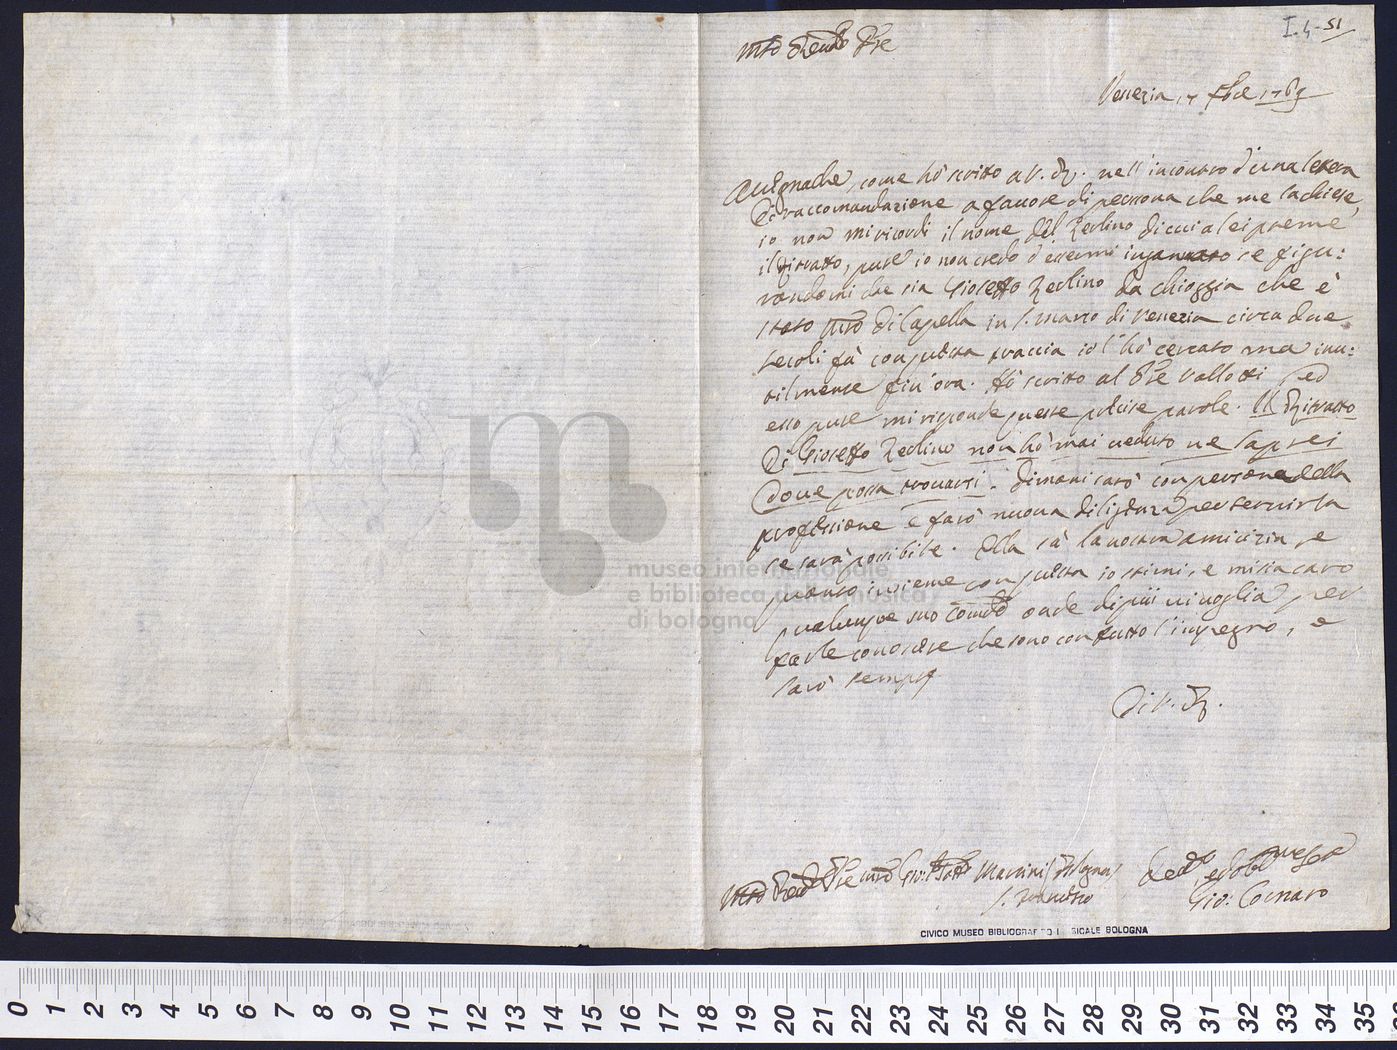 I.4-51
Mto Rendo Pre
Venezia 17 1769
Avegnachè, come hò scritto a V. R. nell'incontro d'una lettera
di raccomandazione a favore di persona che me la chiese,
io non mi ricordi il nome del Zerlino di cui a lei preme
il ritratto, pure io non credo d'essermi ingannato se figu:
randomi che sia Gioseffo Zerlino da Chioggia che è
stato Mro di Capella in S. Marco di Venezia circa due
secoli fà con questa traccia io l'hò cercato ma inu:
tilmente fin'ora. Hò scritto al Pre Vallotti ed
esso pure mi risponde queste precise parole. Il Ritratto
di Gioseffo Zerlino non hò mai veduto ne saprei
dove possa trovarsi. Dimani sarò con persone della
professione e farò nuova diligenza per servirla
se sarà possibile. Ella sà la nostra amicizia, e
quanto insieme con questa io stimi, e mi sia caro
qualunque suo Comdo onde di più vi voglia per
farle conoscere che sono con tutto l'impegno, e
sarò sempre
Di V. R.
Mto Rendo Pre Mro Gio: Batta Martini Bologna
S. Francesco
Gio: Cornaro
museo internazionale
e biblioteca della musica
di bologna
CIVICO MUSEO BIBLIOGRAFICO MUSICALE BOLOGNA
0 1 2 3 4 5 6 7 8 9 10 11 12 13 14 15 16 17 18 19 20 21 22 23 24 25 26 27 28 29 30 31 32 33 34 35